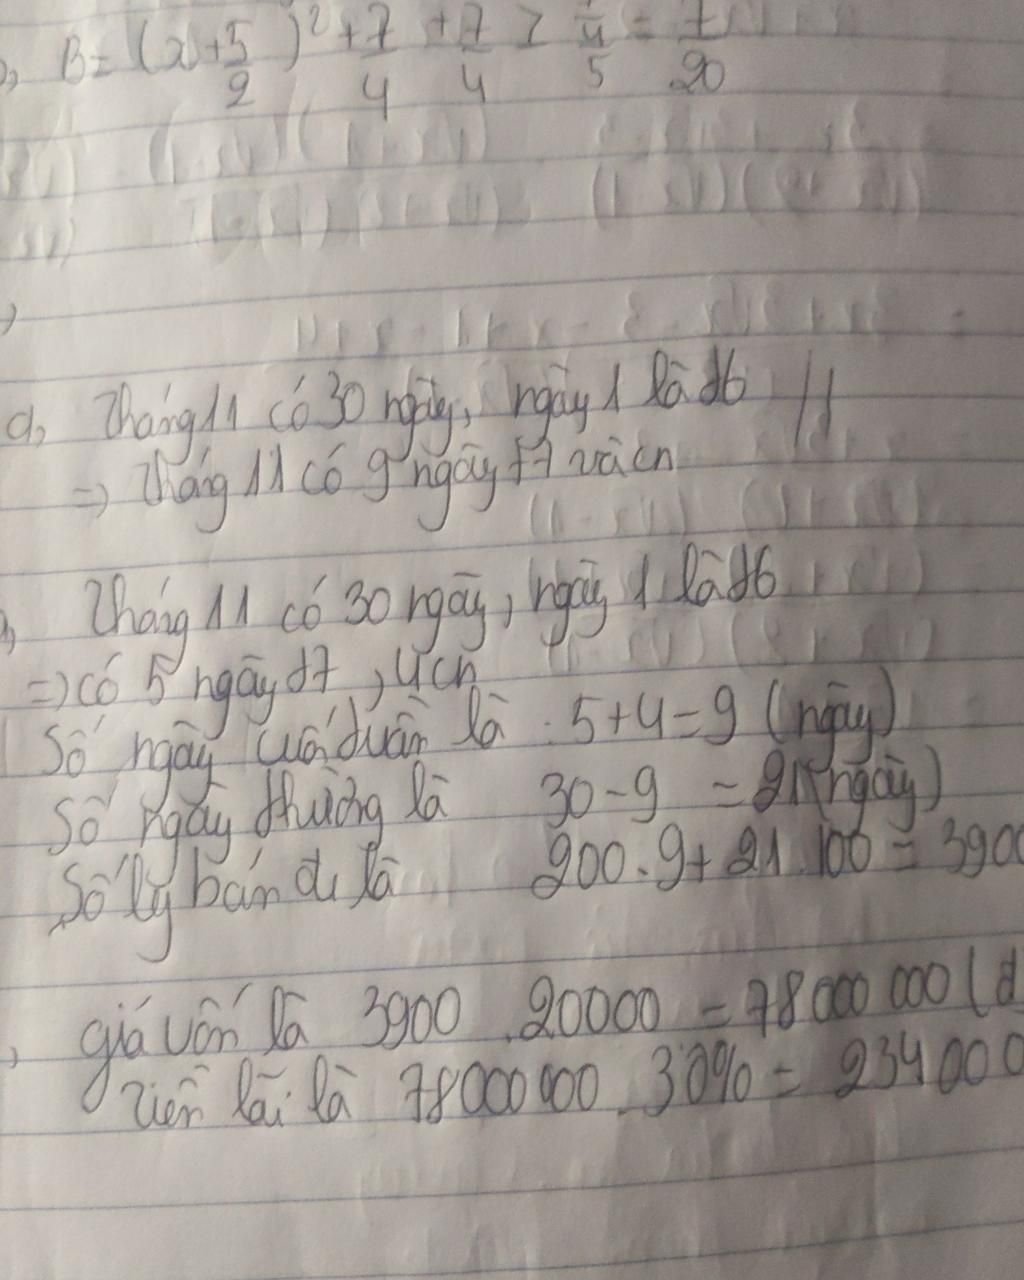 B = (x + 5/2)² + 7/4 + 7/4 > 7/4/5 = 7/20
a, Tháng 11 có 30 ngày, ngày 1 là t6
=> Tháng 11 có 9 ngày t7 và cn
Tháng 11 có 30 ngày, ngày 1 là t6
=> có 5 ngày t7, 4 cn
Số ngày cuối tuần là : 5 + 4 = 9 (ngày)
Số ngày thường là 30 - 9 = 21 (ngày)
Số ly bán đi là 200 . 9 + 21 . 100 = 3900
giá vốn là 3900 . 20000 = 78000 000 (đ
Tiền lãi là 78000000 . 30% = 234000